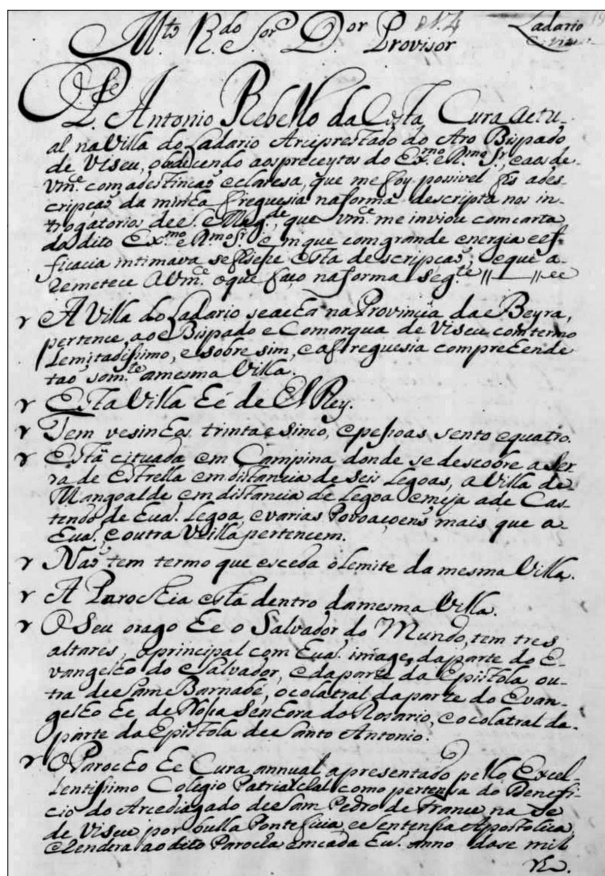 M.to R.do Sor. D.or Provisor
Ladario
P.e Antonio Rebello da Costa Cura actu-
al na Villa do Ladario Arciprestado do Aro Bispado
de Viseu, obdecendo aos preceytos do Ex.mo e R.mo Sr., e aos de
Vm.ce com a destincaõ e claresa, que me foy posivel fis a des-
cripçaõ da minha freguesia na forma descripta nos in-
trogatorios de S. Mag.de, que Vm.ce me inviou com carta
do dito Ex.mo e R.mo Sr. em que com grande energia e ef-
ficacia intimava se fisese esta descripçaõ; e que a
remetece a Vm.ce o que faço na forma seg.te
A Villa do Ladario se acha na Provincia da Beyra,
pertence ao Bispado e Comarqua de Viseu com termo
Lemitadissimo, e sobre sim, e a freguesia comprehende
taõ som.te a mesma Villa.
Esta Villa hé de El Rey.
Tem vesinhos trinta e sinco, e pessoas sento e quatro.
Está cituada em Campina donde se descobre a Ser-
ra de Estrella em distancia de seis Legoas, a Villa de
Mangoalde em distancia de Legoa e meja a de Cas-
tendo de hua Legoa, e varias Povoaçoens mais que a
hua, e outra Villa pertencem.
Naõ tem termo que exceda o lemite da mesma Villa.
A Parochia está dentro da mesma Villa.
O Seu orago hé o Salvador do Mundo, tem tres
altares, o principal com hua image, da parte do E-
vangelho do Salvador, e da parte da Epistola ou-
tra de Sam Barnabé, o colatral da parte do Evan-
gelho hé de Nossa Senhora do Rosario, e o colatral da
parte da Epistola de Santo Antonio.
O Parocho hé Cura annual apresentado pello Excel-
lentissimo Colegio Patriarcal como pertensa do Benefi-
cio do Arcediagado de Sam Pedro de France na Sé
de Viseu por bulla Ponteficia, e sentensa Apostolica,
e renderá ao dito Parocho em cada hu. anno dose mil